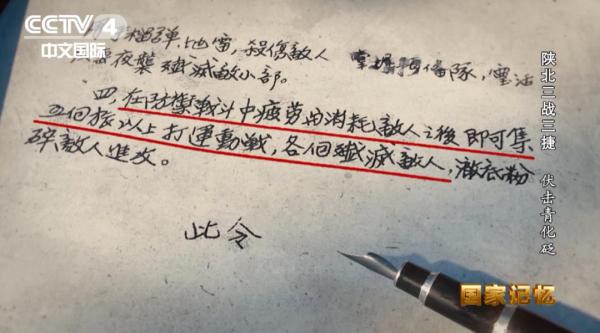 CCTV 4
中文国际
榴弹、地雷，殺傷敵人 掌握預备隊，灵活
夜襲殲滅敵小部。
四、在防禦戰斗中疲劳与消耗敵人之後即可集
五個旅以上打運動戰，各個殲滅敵人，澈底粉
碎敵人進攻。
此令
陕北三战三捷 伏击青化砭
国家记忆